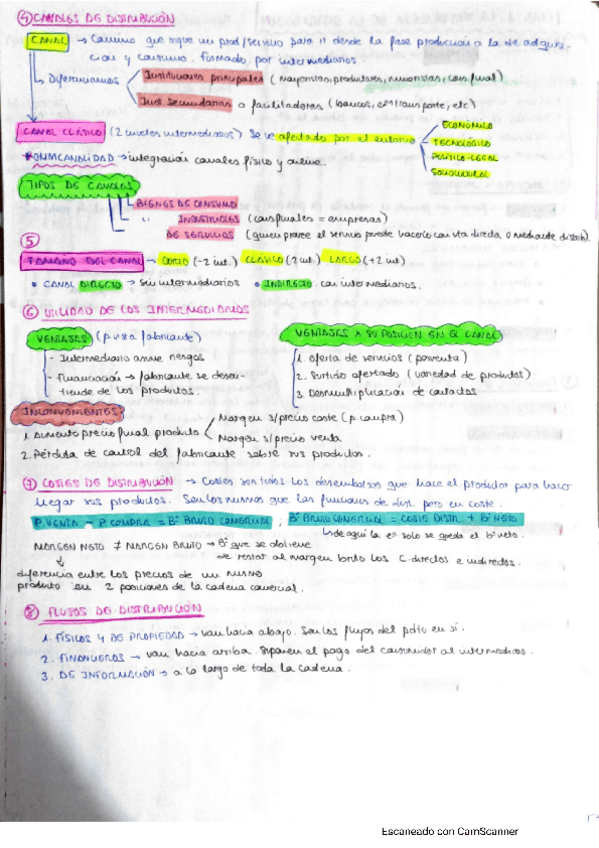 ④ CANALES DE DISTRIBUCIÓN
CANAL → Camino que sigue un prod/servicio para ir desde la fase producción a la de adquisi-
ción y consumo. Formado por intermediarios.
→ Diferenciamos Instituciones principales (mayoristas, productores, minoristas, cons final)
Inst. secundarias o facilitadores (bancos, em transporte, etc)
CANAL CLÁSICO (2 niveles intermediarios) Se ve afectado por el entorno
ECONÓMICO
TECNOLÓGICO
POLÍTICO-LEGAL
SOCIOCULTURAL
*OMNICANALIDAD → integración canales físico y online.
TIPOS DE CANALES
BIENES DE CONSUMO
" INDUSTRIALES (cons finales = empresas)
DE SERVICIOS (quien provee el servicio puede hacerlo con vta directa, o mediante distrib).
⑤
TAMAÑO DEL CANAL → CORTO (-2 int.) CLÁSICO (2 int.) LARGO (+2 int)
• CANAL DIRECTO → Sin intermediarios • INDIRECTO. con intermediarios.
⑥ UTILIDAD DE LOS INTERMEDIARIOS
VENTAJAS (p. vista fabricante)
- Intermediario asume riesgos
- Financiación → fabricante se desen-
tiende de los productos.
VENTAJAS X SU POSICIÓN EN EL CANAL
1. Oferta de servicios (posventa)
2. Surtido ofertado (variedad de productos)
3. Desmultiplicación de contactos
INCONVENIENTES
1. Aumento precio final producto
Margen s/precio coste (p. compra)
Margen s/precio venta
2. Pérdida de control del fabricante sobre sus productos.
⑦ COSTES DE DISTRIBUCIÓN → Costes son todos los desembolsos que hace el productor para hacer
llegar sus productos. Son los mismos que las funciones de dist. pero en coste.
P. VENTA - P. COMPRA = Bº BRUTO COMERCIAL ; Bº BRUTO COMERCIAL = COSTE DISTR. + Bº NETO
↳ de aquí la eª solo se queda el bº neto.
MARGEN NETO ≠ MARGEN BRUTO → Bº que se obtiene
de restar al margen bruto los C. directos e indirectos.
diferencia entre los precios de un mismo
producto en 2 posiciones de la cadena comercial.
⑧ FLUJOS DE DISTRIBUCIÓN
1. FÍSICOS Y DE PROPIEDAD → van hacia abajo. Son los flujos del pdto en sí.
2. FINANCIEROS → van hacia arriba. Suponen el pago del consumidor al intermediario.
3. DE INFORMACIÓN → a lo largo de toda la cadena.
Escaneado con CamScanner